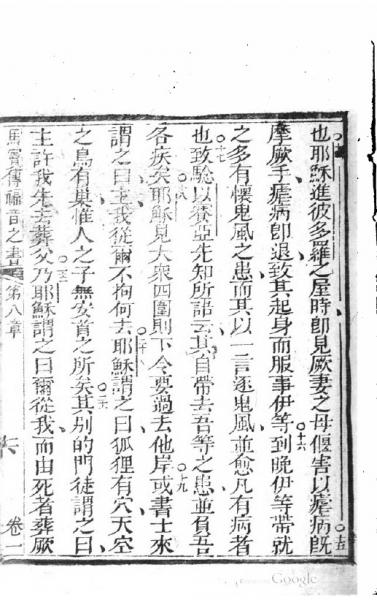 也耶穌進彼多羅之屋時卽見厥妻之母偃害以瘧病旣
摩厥手瘧病卽退致其起身而服事伊等到晚伊等帶就
之多有懷鬼風之患而其以一言逐鬼風並愈凡有病者
也致驗以賽亞先知所語云其自帶去吾等之患並負吾
各疾矣耶穌見大衆四圍則下令要過去他岸或書士來
謂之曰主我從爾不拘何去耶穌謂之曰狐狸有穴天空
之鳥有巢惟人之子無安首之所矣其別的門徒謂之曰
主許我先去葬父乃耶穌謂之曰爾從我而由死者葬厥
馬竇傳福音之書 第八章 卷一
Google